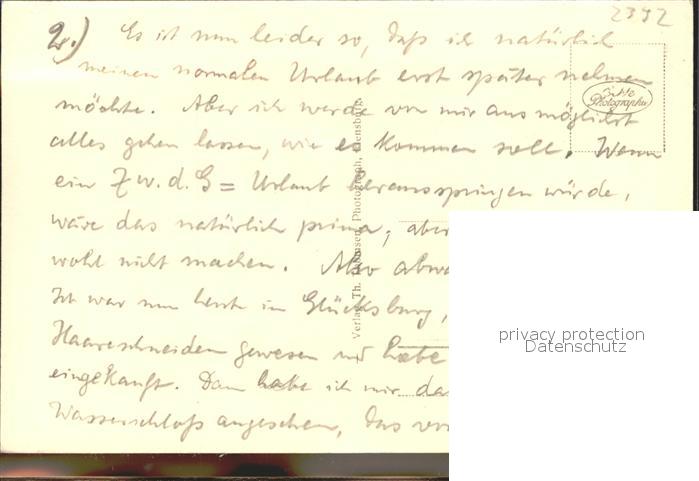 2392
2.) Es ist nun leider so, daß ich natürlich
meinen normalen Urlaub erst später nehmen
möchte. Aber ich werde von mir aus möglichst
alles gehen lassen, wie es kommen soll. Wenn
ein Z.w.d.G = Urlaub herausspringen würde,
wäre das natürlich prima, aber
wohl nicht machen. Also abwa
Ich war nun heute in Glücksburg,
Haareschneiden gewesen und habe
eingekauft. Dann habe ich mir das
Wasserschloß angesehen, das
Echte
Photographie
Verlag Th. Thomsen, Photograph, Flensburg
privacy protection
Datenschutz